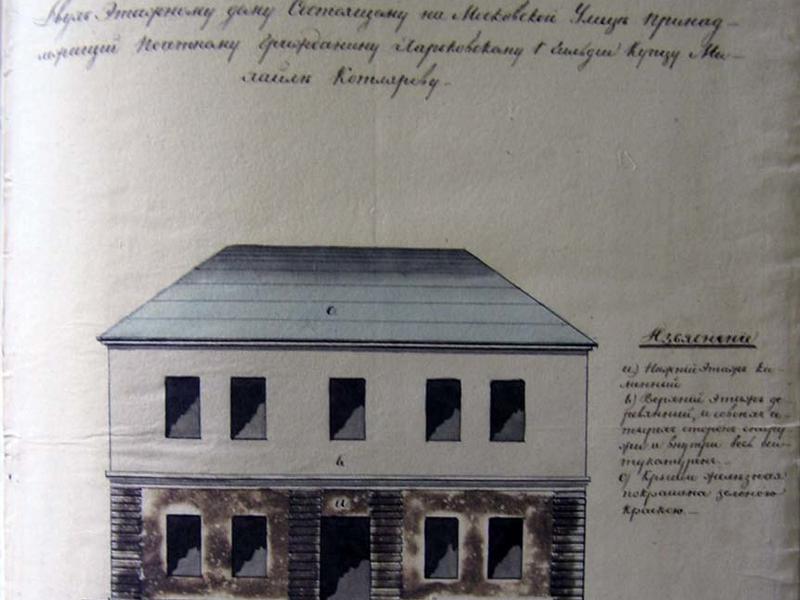 Двухъ Этажному дому Состоящему на Московской Улицѣ принад-
лежащій Почтному Гражданину Харьковскому 1 Гильдіи Купцу Ми-
хайлѣ Котлярову.
c
Изъясненіе
а) Нижній Этажъ ка-
менный
b
b) Верхній этажъ де-
ревянный, и со всѣхъ че-
тырехъ сторонъ снару-
жи и внутри весь
c) Крыша желѣзная
a
покрашена зеленою
краскою.